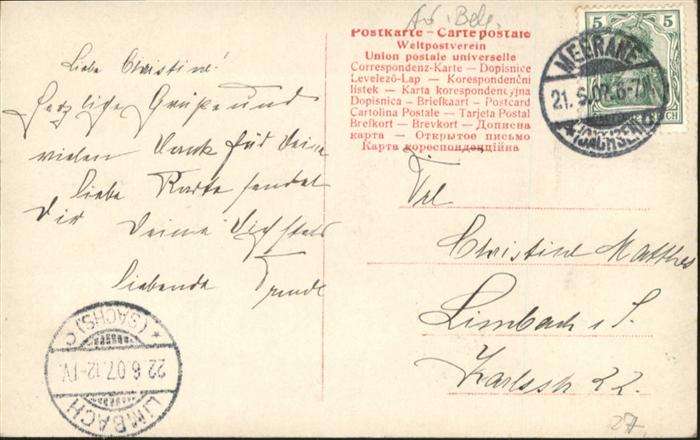 Liebe Christine!
Herzliche Grüße und
vielen Dank für Deine
liebe Karte sendet
Dir Deine Dich stets
liebende Trude
Postkarte – Carte postale
Weltpostverein
Union postale universelle
Correspondenz-Karte – Dopisnice
Levelező-Lap – Korespondenční
listek – Karta korespondencyjna
Dopisnica – Briefkaart – Postcard
Cartolina Postale – Tarjeta Postal
Brefkort – Brevkort – Дописна
карта – Открытое письмо
Карта кореспонденційна
5 5
MEERANE
21. 6. 07. 6-7
(SACHSEN)
Frl.
Christine Matthes
Limbach i. S.
Karlsstr 22.
27
LIMBACH
22.6.07.12-1V.
(SACHS)